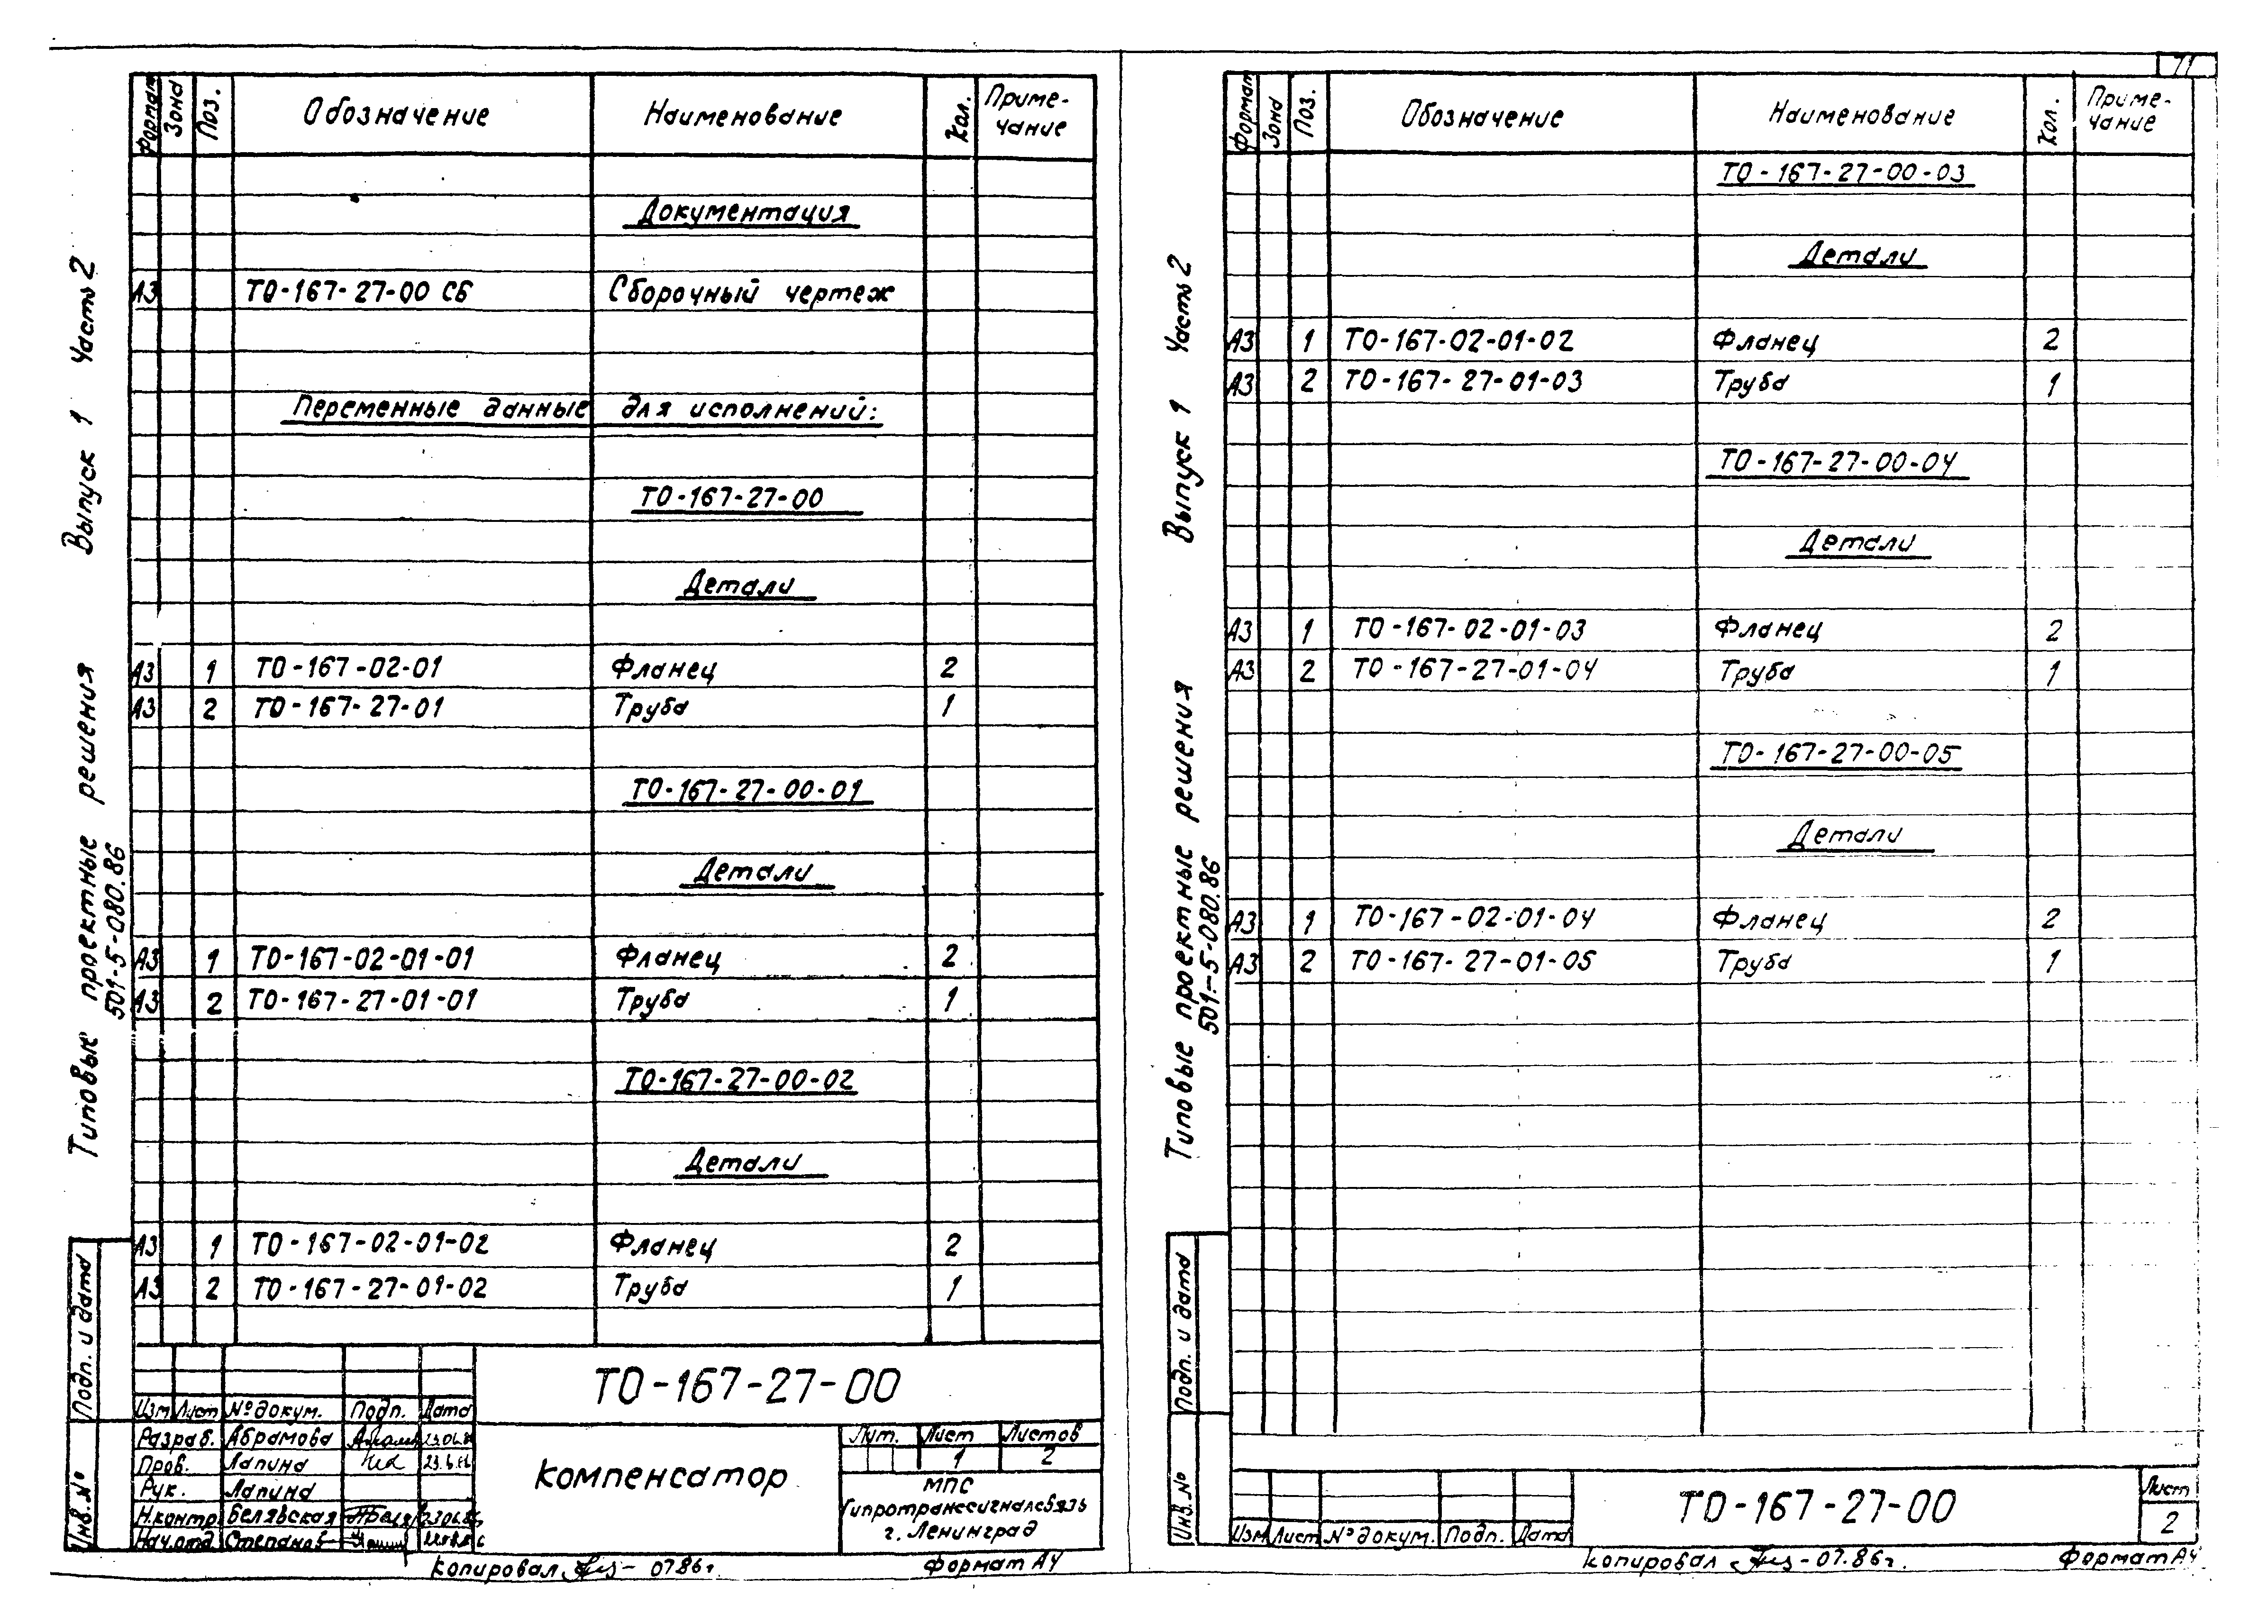 Формат Зона Поз. Обозначение Наименование Кол. Приме-
чание
Документация
А3 ТО-167-27-00 СБ Сборочный чертеж
Переменные данные для исполнений:
ТО-167-27-00
Детали
А3 1 ТО-167-02-01 Фланец 2
А3 2 ТО-167-27-01 Труба 1
ТО-167-27-00-01
Детали
А3 1 ТО-167-02-01-01 Фланец 2
А3 2 ТО-167-27-01-01 Труба 1
ТО-167-27-00-02
Детали
А3 1 ТО-167-02-01-02 Фланец 2
А3 2 ТО-167-27-01-02 Труба 1
Типовые проектные решения Выпуск 1 Часть 2
501-5-080.86
Подп. и дата
Инв. №
ТО-167-27-00
Изм Лист № докум. Подп. Дата
Разраб. Абрамова
Пров. Лапина
Рук. Лапина
Н.контр. Белявская
Нач.отд. Степанов
компенсатор
Лит. Лист Листов
1 2
МПС
Гипротранссигналсвязь
г. Ленинград
копировал 07.86г. Формат А4
71
Формат Зона Поз. Обозначение Наименование Кол. Приме-
чание
ТО-167-27-00-03
Детали
А3 1 ТО-167-02-01-02 Фланец 2
А3 2 ТО-167-27-01-03 Труба 1
ТО-167-27-00-04
Детали
А3 1 ТО-167-02-01-03 Фланец 2
А3 2 ТО-167-27-01-04 Труба 1
ТО-167-27-00-05
Детали
А3 1 ТО-167-02-01-04 Фланец 2
А3 2 ТО-167-27-01-05 Труба 1
Типовые проектные решения Выпуск 1 Часть 2
501-5-080.86
Подп. и дата
Инв. №
Изм Лист № докум. Подп. Дата
ТО-167-27-00
Лист
2
копировал 07.86г. Формат А4